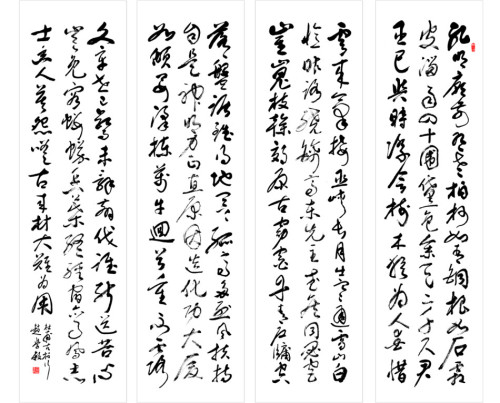 孔明廟前有老柏柯如青銅根如石霜
皮溜雨四十圍黛色參天二千尺君
臣已與時際會樹木猶為人愛惜
雲來氣接巫峽長月出寒通雪山白
憶昨路繞錦亭東先主武侯同閟宮
崔嵬枝幹郊原古窈窕丹青戶牖空
落落盤踞雖得地冥冥孤高多烈風扶持
自是神明力正直原因造化功大廈
如傾要梁棟萬牛迴首丘山重不露
文章世已驚未辭翦伐誰能送苦心
豈免容螻蟻香葉終經宿鸞鳳志
士幽人莫怨嗟古來材大難為用
杜甫古柏行